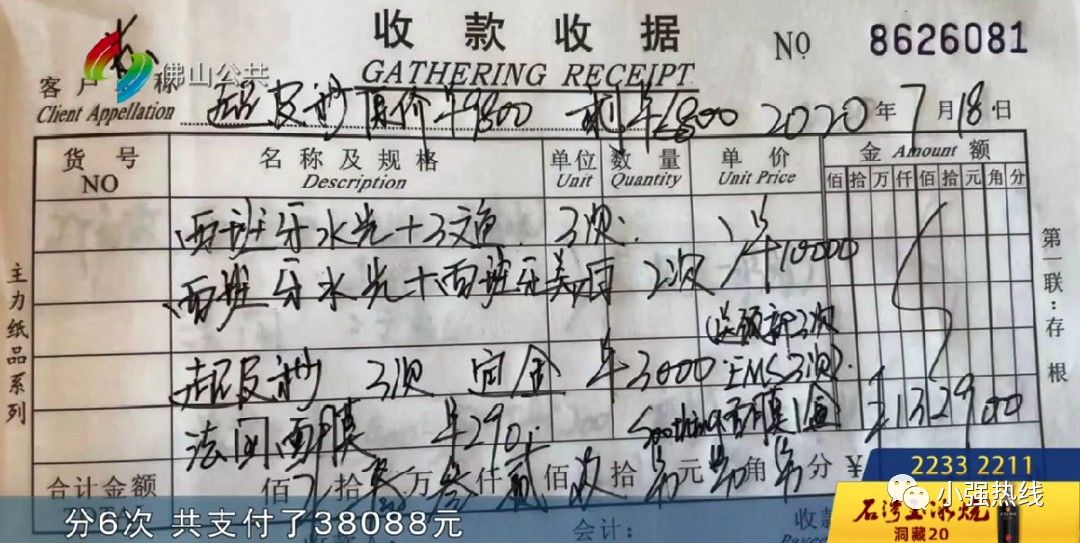 收款收据 NO 8626081
佛山公共
GATHERING RECEIPT
客户 称
Client Appellation
超皮秒 原价¥9800 ¥6800 2020年7月18日
货号 名称及规格 单位 数量 单价 金 Amount 额
NO Description Unit Quantity Unit Price 佰拾万仟佰拾元角分
西班牙水光+三文鱼 3次 ¥10000
西班牙水光+西班牙美 2次
3次
超皮秒 3次 定金 ¥3000 EMS3次)
法间面膜 ¥290 面膜1盒 1329000
合计金额 佰 拾 万叁仟贰佰玖拾 元 角 分 ¥
主力纸品系列
第一联:存根
分6次 共支付了38088元
会计: 收款
2233 2211
小强热线
石湾玉冰烧
洞藏20